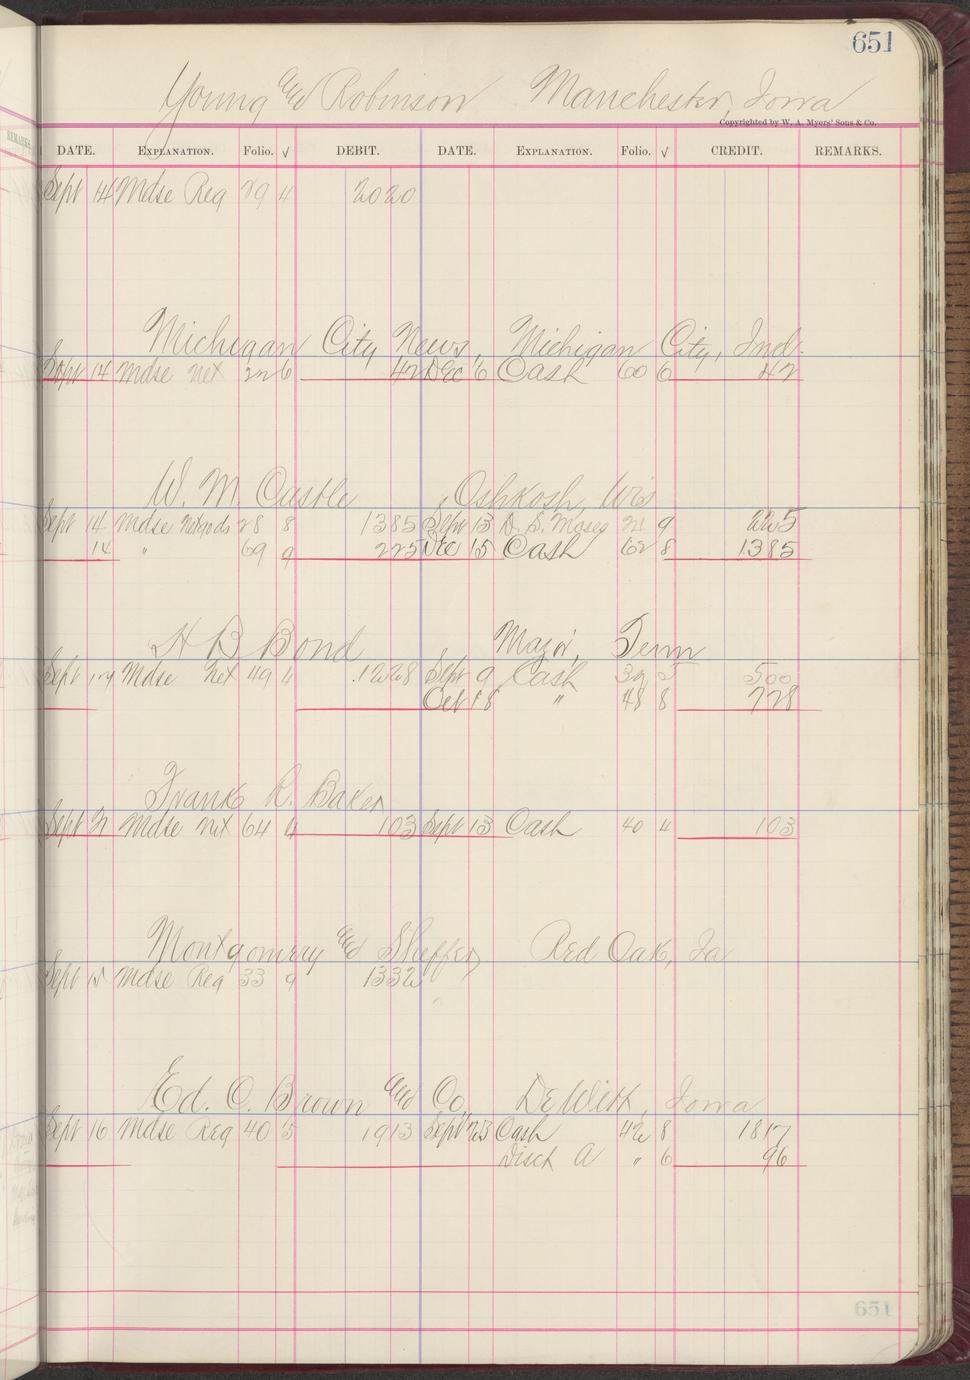 651
Young and Robinson Manchester, Iowa
Copyrighted by W. A. Myers' Sons & Co.
DATE. EXPLANATION. Folio. √ DEBIT. DATE. EXPLANATION. Folio. √ CREDIT. REMARKS.
Sept 14 Mdse Reg 29 4 2020
Michigan City News, Michigan City, Ind.
Sept 14 Mdse Net 22 6 42 Dec 6 Cash 60 6 42
W. M. Castle, Oshkosh, Wis
Sept 14 Mdse Net gods 28 8 1385 Sept 13 D. S. Moses 21 9 225
14 " 69 9 225 Dec 15 Cash 62 8 1385
H B Bond Mazor, Tenn
Sept Mdse Net 49 4 1228 Sept 9 Cash 39 5 500
Oct 18 " 48 8 728
Frank R. Baker
Sept Mdse Net 64 4 103 Sept 13 Cash 40 4 103
Montgomery and Sheffer, Red Oak, Ia
Sept 15 Mdse Reg 33 9 1332
Ed. C. Brown and Co, DeWitt, Iowa
Sept 16 Mdse Reg 40 5 1913 Sept 23 Cash 42 8 1817
Disct A " 6 96
651